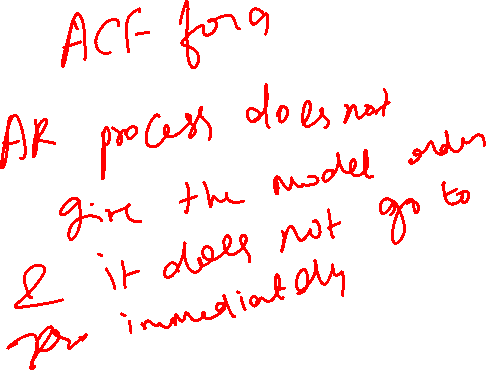 ACF for a
AR process does not
give the model order
& it does not go to
zero immediately